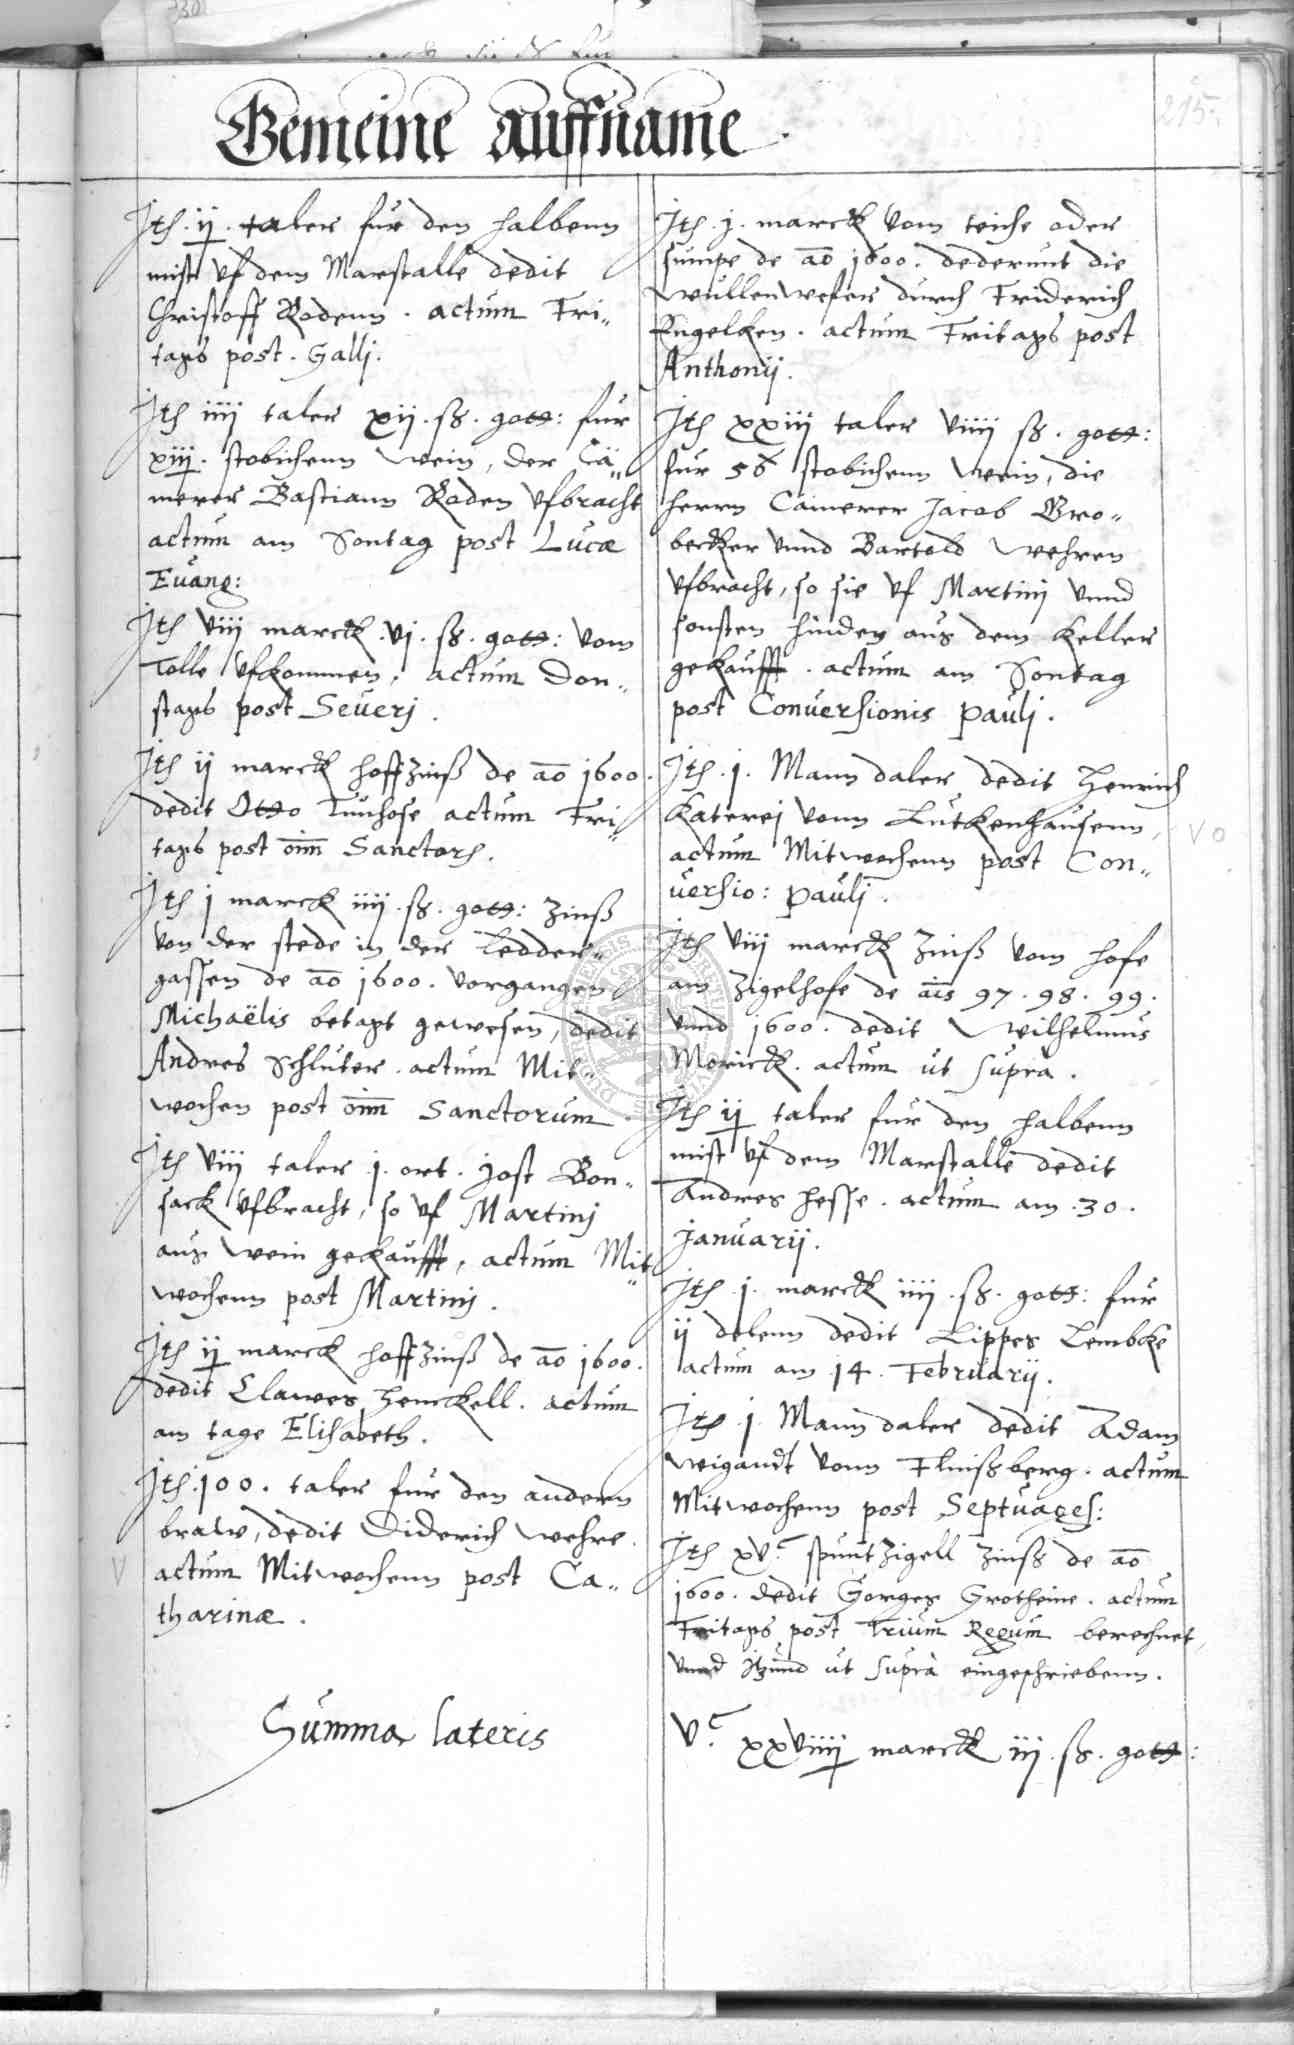 Gemeine auffname
215.
Jtē. ij. taler fur den halbenn
mist uf dem Marstalle dedit
Christoff Rodenn. actum Fri„
tags post. Gallj.
Jtē iiij taler xij. ß. gott: fur
xiij. stobichenn wein, der Cä„
merer Bastiann Roden ufbracht
actum am Sontag post Lucæ
Euang:
Jtē viij marck. vj. ß. gott: vom
Tolle ufkommen, actum Don„
stags post Seuerj.
Jtē ij marck hoffzinß de aō 1600.
dedit Otto Tunhose actum Fri„
tags post oim̄ Sanctorē.
Jtē j marck iiij. ß. gott: zinß
von der stede in der Ledder„
gassen de aō 1600. vorgangen
Michaëlis betagt gewesen, dedit
Andres Schluter. actum Mit„
wochen post oim̄ Sanctorum.
Jtē viij taler j. ort. Jost Bon„
sack ufbracht, so uf Martinj
aus wein gekaufft, actum Mit„
wochenn post Martinj.
Jtē ij marck hoffzinß de aō 1600.
dedit Clawes Henckell. actum
am tage Elisabeth.
Jtē 100. taler fur den andern
braw, dedit Diderich Wehre.
V
actum Mitwochenn post Ca„
tharinæ.
Summa lateris
Jtē. j. marck vom teiche oder
sumpe de aō 1600. dederunt die
Wullenwefer durch Friderich
Engelken. actum Fritags post
Anthonij.
Jtē xxiij taler viiij ß. gott:
fur 56 stobichenn wein, die
herrn Cämerer Jacob Bro„
becker unnd Bartold Wehren
ufbracht, so sie uf Martinj unnd
sonsten hinden aus dem Keller
gekaufft. actum am Sontag
post Conuersionis Paulj.
Jtē. j. Mann daler dedit Henrich
Katerej vonn Lutkenhausenn,
V O
actum Mitwochenn post Con„
uersio: Paulj.
Jtē viij marck zinß vom hofe
am zigelhofe de ais 97. 98. 99.
unnd 1600. dedit Wilhelmus
Morick. actum ut supra.
Jtē ij taler fur den halbenn
mist uf dem Marstalle dedit
Andres Hesse. actum am. 30.
Januarij.
Jtē. j. marck iiij. ß. gott: fur
ij delenn dedit Lippes Lembcke
actum am 14. Februarij.
Jtē. j. Mann daler dedit Adam
Wigandt vonn Flinßberg. actum
Mitwochenn post Septuages:
Jtē xvc. spuntzigell zinß de aō
1600. dedit Gorges Grotheine. actum
Fritags post Trium Regum berechnet,
unnd itzund ut supra eingeschriebenn.
vc. xxviiij marck iij. ß. gott: